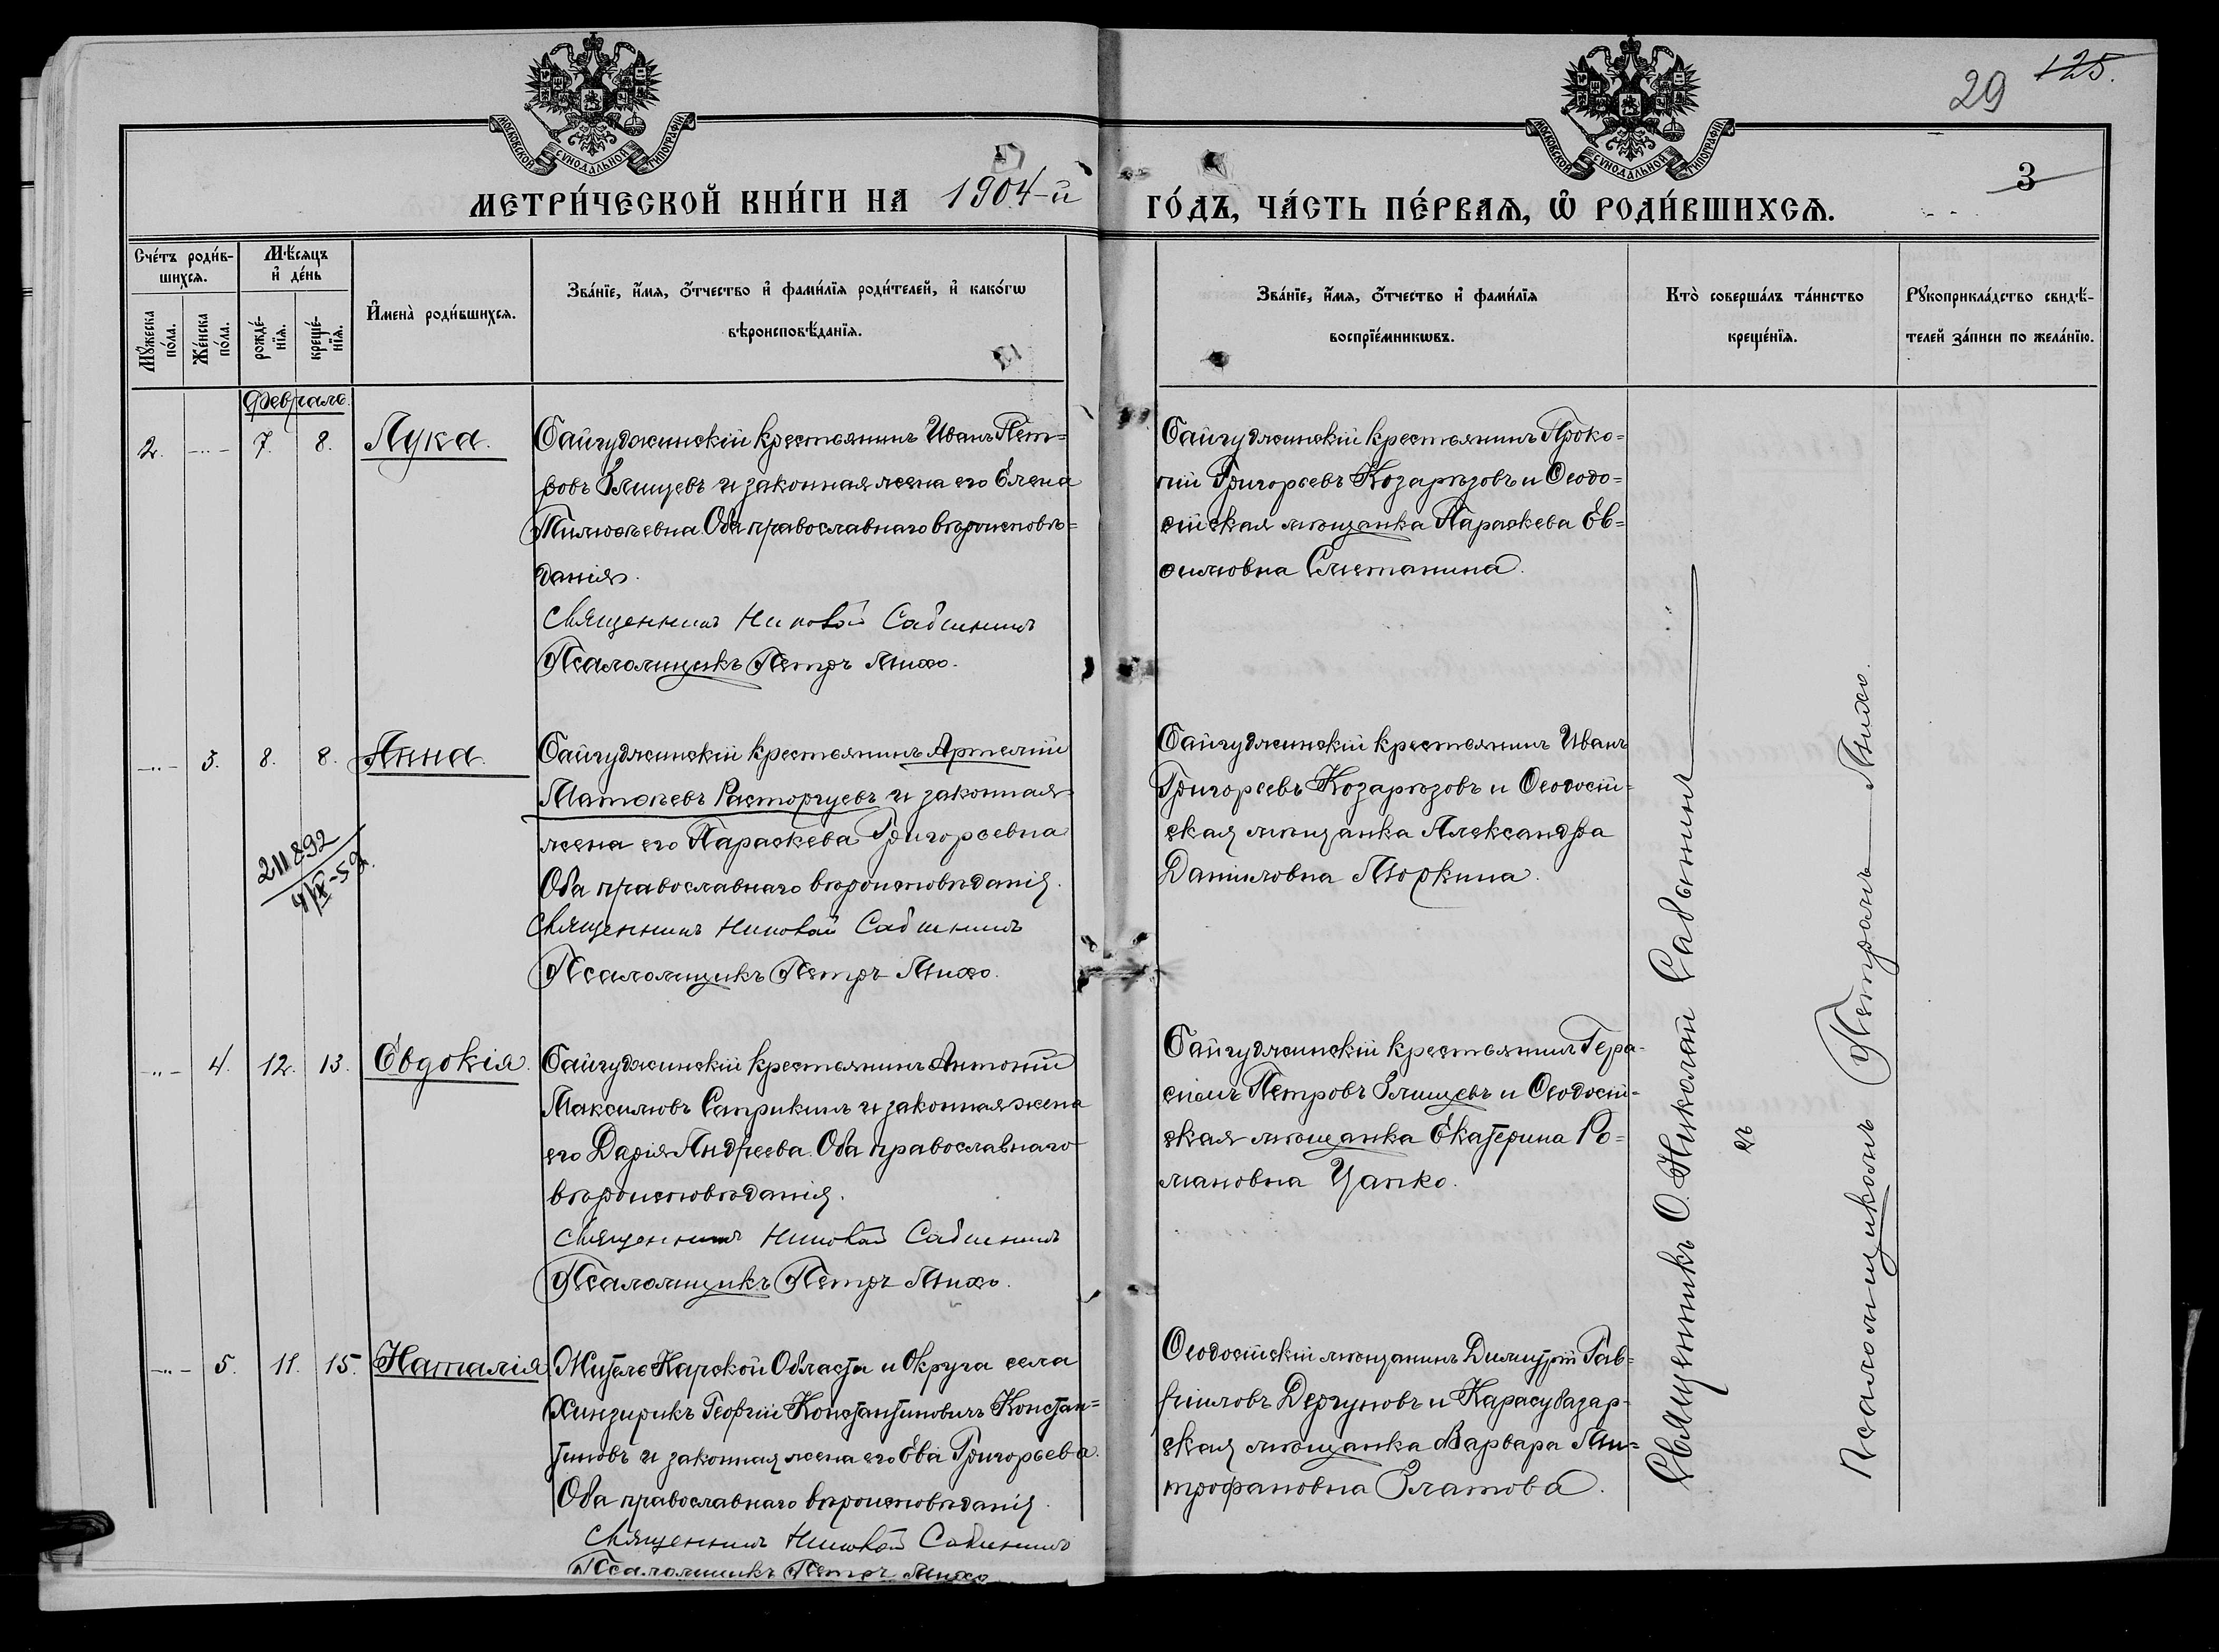 МОСКОВСКОЙ СѴНОДАЛЬНОЙ ТИПОГРАФІИ
МОСКОВСКОЙ СѴНОДАЛЬНОЙ ТИПОГРАФІИ
29 125.
3
МЕТРИ́ЧЕСКОЙ КНИ́ГИ НА 1904-й ГО́ДЪ, ЧА́СТЬ ПЕ́РВАѦ, Ѡ҆ РОДИ́ВШИХСѦ.
Сче́тъ роди́в-
шихсѧ.
Мꙋ́жеска
по́ла.
Же́нска
по́ла.
Мѣ́сѧцъ
и҆ де́нь
рожде́-
нїѧ.
креще́-
нїѧ.
И҆мена̀ роди́вшихсѧ.
Зва́нїе, и҆́мѧ, ѻ҆́тчество и҆ фами́лїѧ роди́телей, и҆ како́гѡ
вѣроисповѣ́данїѧ.
Зва́нїе, и҆́мѧ, ѻ҆́тчество и҆ фами́лїѧ
воспрїе́мникѡвъ.
Кто̀ соверша́лъ та́инство
креще́нїѧ.
Рꙋкоприкла́дство свидѣ́-
телей за́писи по жела́нїю.
Февраль.
2. -"- 7. 8. Лука.
Байгуджинскій крестьянинъ Иванъ Пет=
ровъ Злищевъ и законная жена его Елена
Тимоѳеевна. Оба православнаго вѣроисповѣ=
данія.
Священникъ Николай Сабининъ
Псаломщикъ Петръ Михо.
Байгуджинскій крестьянинъ Проко=
пій Григорьевъ Козарѣзовъ и Ѳеодо=
сійская мѣщанка Параскева Ев=
ѳимовна Сметанина.
-"- 3. 8. 8. Анна.
Байгуджинскій крестьянинъ Артемій
Матѳеевъ Расторгуевъ и законная
жена его Параскева Григорьевна
Оба православнаго вѣроисповѣданія.
Священникъ Николай Сабининъ
Псаломщикъ Петръ Михо.
211892
4/IX-52.
Байгуджинскій крестьянинъ Иванъ
Григорьевъ Козарѣзовъ и Ѳеодосій=
ская мѣщанка Александра
Даниловна Тюркина.
-"- 4. 12. 13. Евдокія.
Байгуджинскій крестьянинъ Антоній
Максимовъ Саприкинъ и законная жена
его Дарія Андреева. Оба православнаго
вѣроисповѣданія.
Священникъ Николай Сабининъ
Псаломщикъ Петръ Михо.
Байгуджинскій крестьянинъ Гера-
симъ Петровъ Злищевъ и Ѳеодосій-
ская мѣщанка Екатерина Ро=
мановна Цапко.
-"- 5. 11. 15. Наталія
Житель Карской Области и Округа села
Хинзирикъ Георгій Константиновичъ Констан=
тиновъ и законная жена его Ева Григорьева.
Оба православнаго вѣроисповѣданія.
Священникъ Николай Сабининъ
Псаломщикъ Петръ Михо
Ѳеодосійскій мѣщанинъ Димитрій Гав=
ріиловъ Дергуновъ и Карасубазар-
ская мѣщанка Варвара Ми=
трофановна Златова.
Священникъ О. Николай Сабининъ
съ
Псаломщикомъ Петромъ Михо.